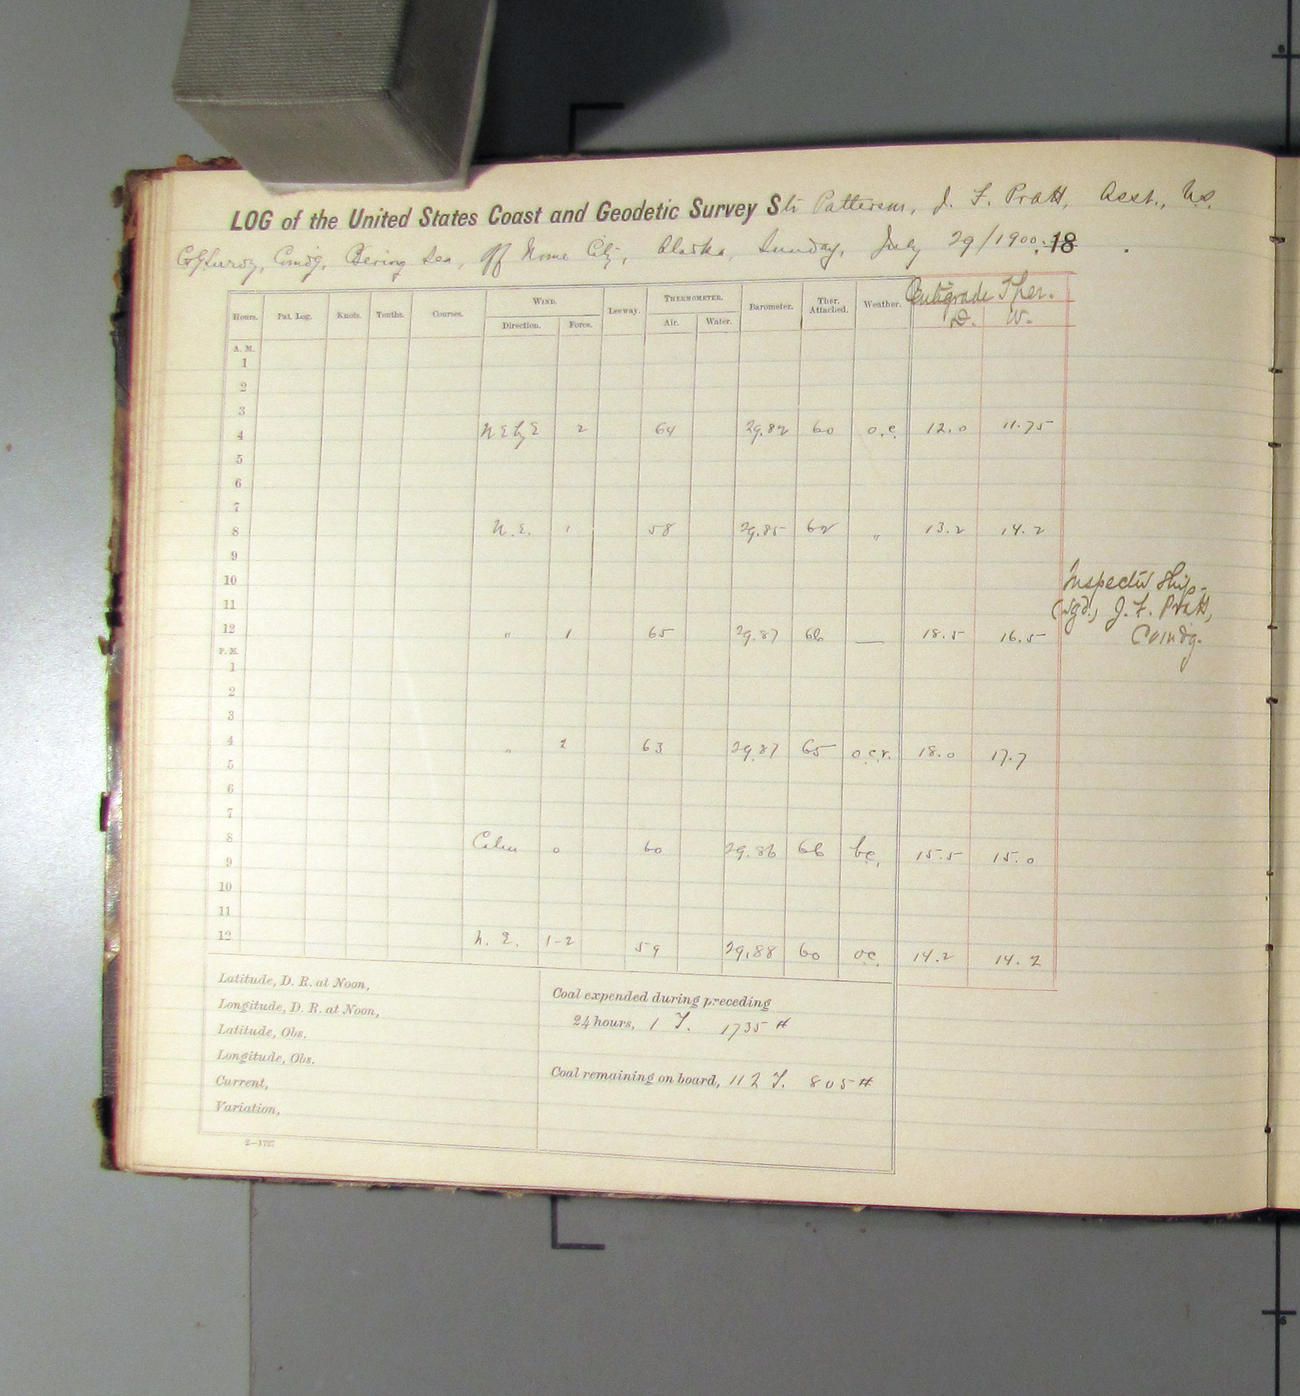 LOG of the United States Coast and Geodetic Survey Str Patterson, J. F. Pratt, Asst., U.S.
C&G Survey, Comdg, Bering Sea, off Nome City, Alaska, Sunday, July 29/1900. 18
Hours. Pat. Log. Knots. Tenths. Courses. WIND. Leeway. THERMOMETER. Barometer. Ther. Attached. Weather. Centigrade Ther.
Direction. Force. Air. Water. D. W.
A. M.
1
2
3
4 NE by E 2 64 29.82 60 o.c. 12.0 11.75
5
6
7
8 N.E. 1 58 29.85 62 " 13.2 14.2
9
10 Inspected Ship-
11 (sgd.) J. F. Pratt,
12 " 1 65 29.87 66 — 18.5 16.5 Comdg.
P. M.
1
2
3
4 " 2 63 29.87 65 o.c.r. 18.0 17.7
5
6
7
8 Calm 0 60 29.86 66 bc, 15.5 15.0
9
10
11
12 N. E. 1-2 59 29.88 60 oc. 14.2 14.2
Latitude, D. R. at Noon,
Longitude, D. R. at Noon,
Latitude, Obs.
Longitude, Obs.
Current,
Variation,
Coal expended during preceding
24 hours, 1 T. 1735 #
Coal remaining on board, 112 T. 805 #
2—1727